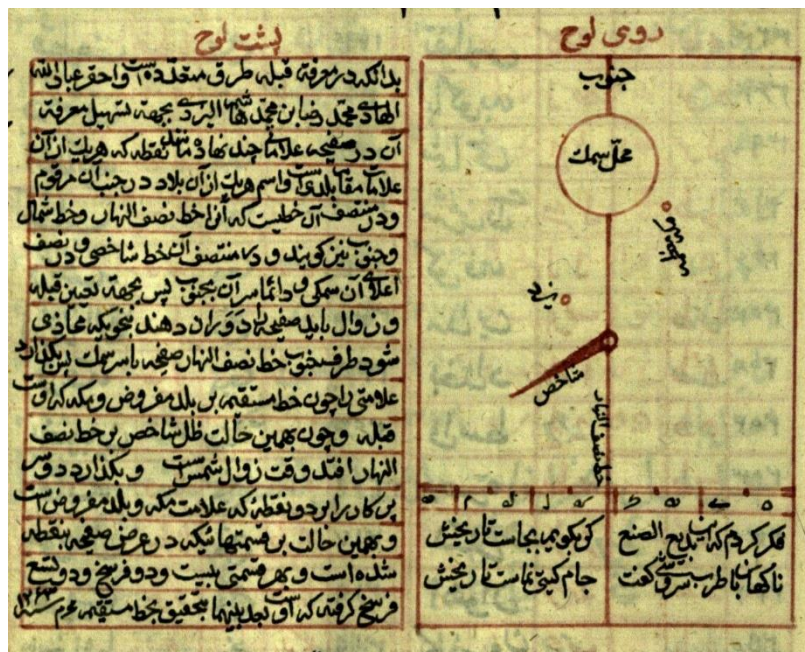 روی لوح
جنوب
محل سمک
یزد
شاخص
خط نصف النهار
فکر کردم که این بدیع الصنع
کو بگویم بجاست تاریخش
ناکهان با طرب سروشی گفت
جام گیتی نماست تاریخش
پشت لوح
بدانکه در معرفة قبله طرق متعدده است و احقر عباد الله
الهادی محمد رضا ابن محمد هاشم الیزدی بجهة تسهیل معرفة
آن در صفیحه علاماتی چند نهاده نقطه که هر یك از آن
علامات مقابل بلدی است و اسم هر یك از آن بلاد در جنب آن مرقوم
و در منتصف آن خطیست که آنرا خط نصف النهار و خط شمال
و جنوب نیز کویند و در منتصف آن خط شاخصی و در نصف
اعلای آن سمکی و دائما سر آن بجنوب پس بجهة تعیین قبله
و زوال باید صفیحه را دوران دهند بنحویکه محاذی
شود طرف جنوب خط نصف النهار صفیحه با سر سمك پس بکذارد
علامتی را چون خط مستقیم بر بلد مفروض و مکه که اوست
قبله و چون بهمین حالت ظل شاخص بر خط نصف
النهار افتد وقت زوال شمس است و بکذارد دو سر
پرکار را بر دو نقطۀ که علامت مکه و بلد مفروض است
و بهمین حالت بر قسمتهائیکه در عرض صفیحه بنقطه
شده است و بهر قسمتی بیست و دو فرسخ و دو تسع
فرسخ کرفته که اوست بعد بینهما بتحقیق بخط مستقیم محرم سنه ۱۲۶۳